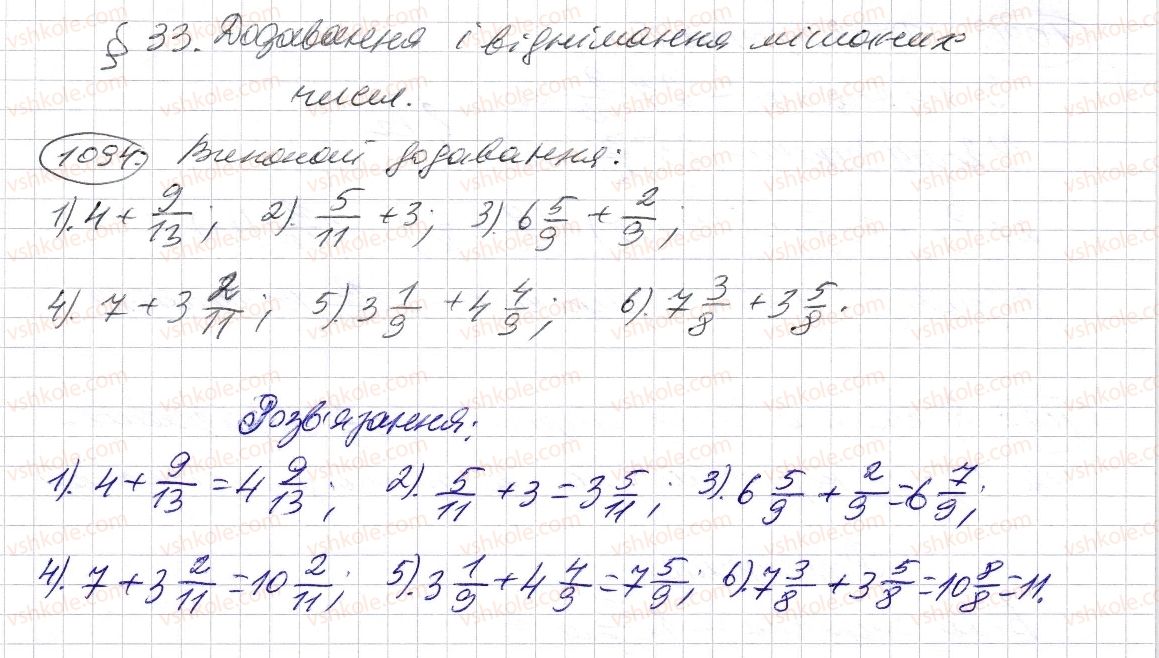 § 33. Додавання і віднімання мішаних
чисел.
1094. Виконай додавання:
1). 4 + 9/13; 2). 5/11 + 3; 3). 6 5/9 + 2/9;
4). 7 + 3 2/11; 5). 3 1/9 + 4 4/9; 6). 7 3/8 + 3 5/8.
Розв'язання:
1). 4 + 9/13 = 4 9/13; 2). 5/11 + 3 = 3 5/11; 3). 6 5/9 + 2/9 = 6 7/9;
4). 7 + 3 2/11 = 10 2/11; 5). 3 1/9 + 4 4/9 = 7 5/9; 6). 7 3/8 + 3 5/8 = 10 8/8 = 11.